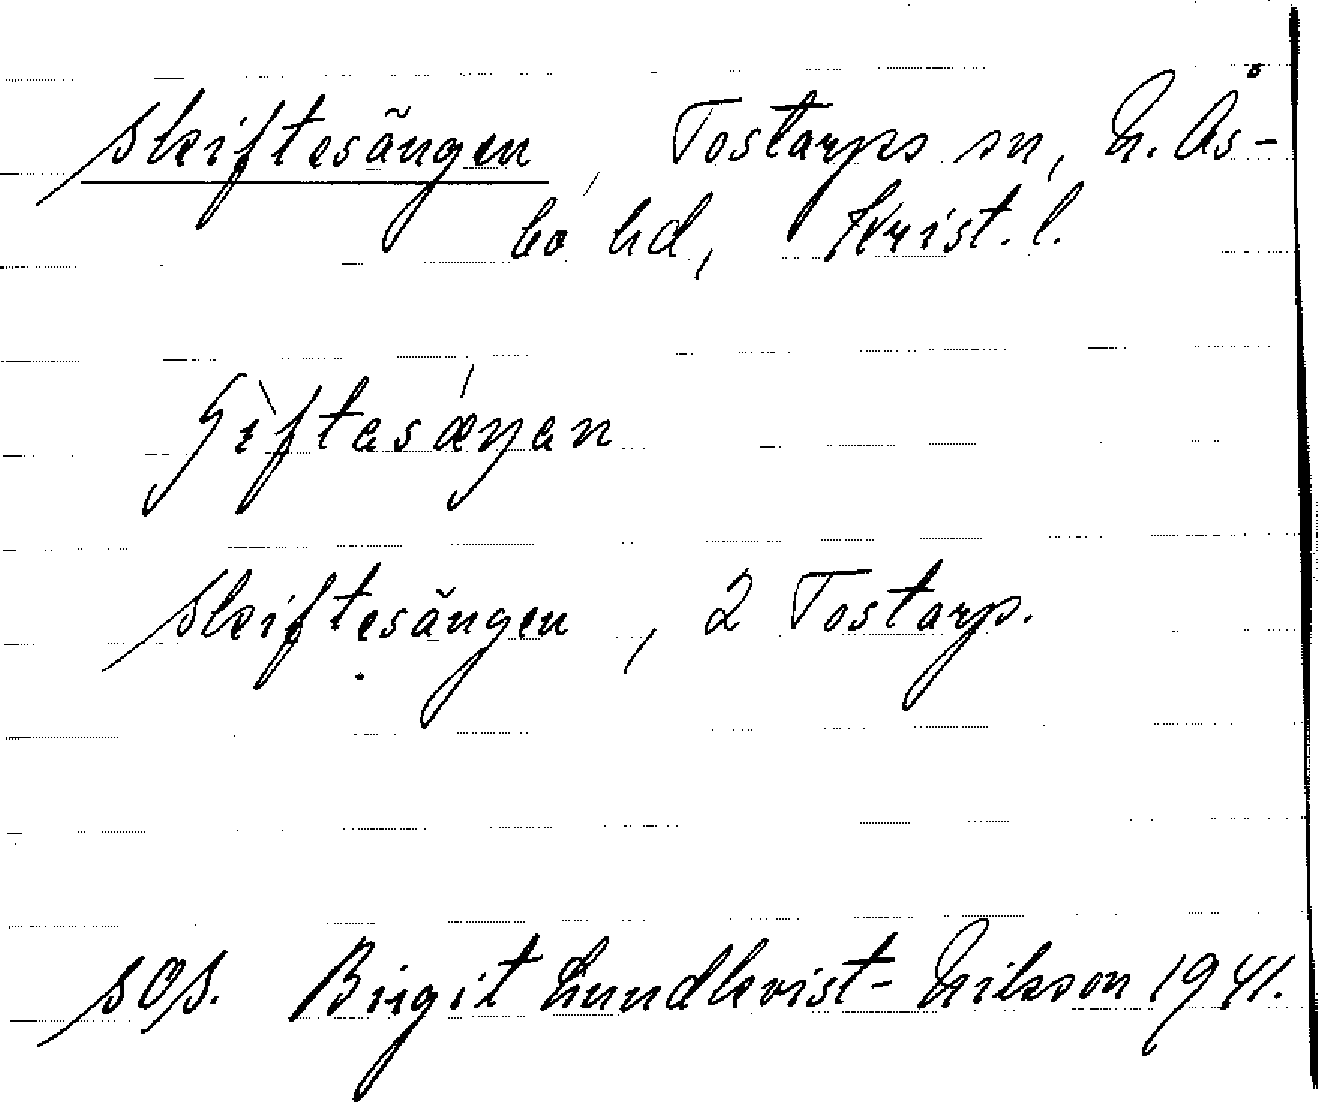 Skiftesängen, Tostarps sn, N. Ås-
bo hd, Krist. l.
Skiftesängen, 2 Tostarp.
Birgit Lundkvist-Nilsson 1941.